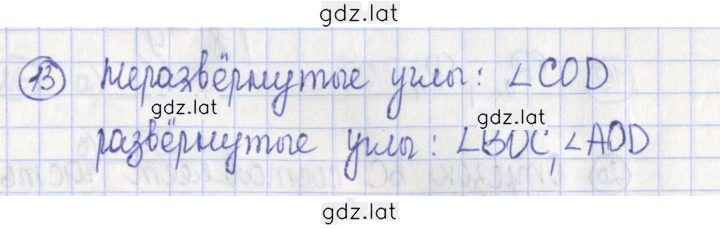 gdz.lat
13 неразвёрнутые углы: ∠COD
gdz.lat
gdz.lat
развёрнутые углы: ∠BOC, ∠AOD
gdz.lat